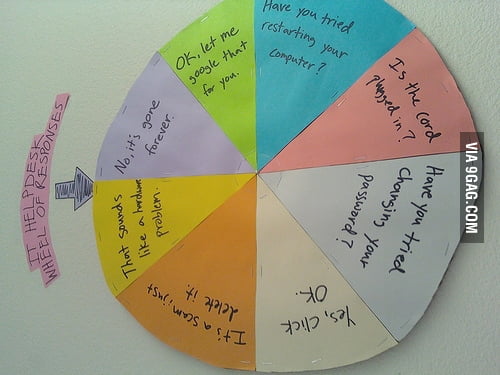 IT HELPDESK
WHEEL OF RESPONSES
Have you tried
restarting your
computer?
Is the cord
plugged in?
Have you tried
changing your
password?
Yes, click
OK.
It's a scam, just
delete it.
That sounds
like a hardware
problem.
No, it's gone
forever.
OK, let me
google that
for you.
VIA 9GAG.COM